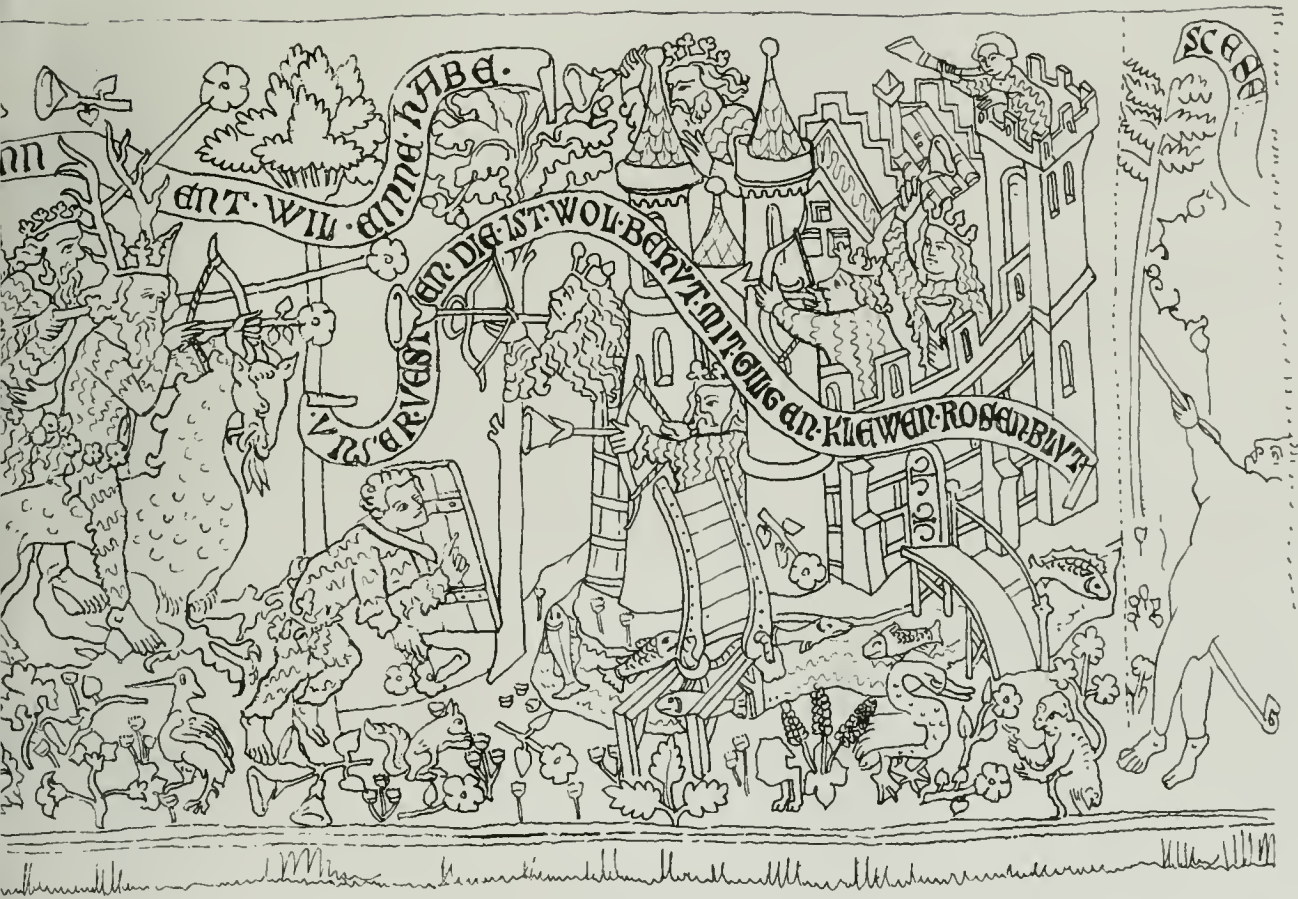 NN
ENT·WIL·EINNE·HABE·
·VNSER·VESTEN·DIE·IST·WOL·BEHVT·MIT·GILGEN·KLEWEN·ROSENBLVT
SCE